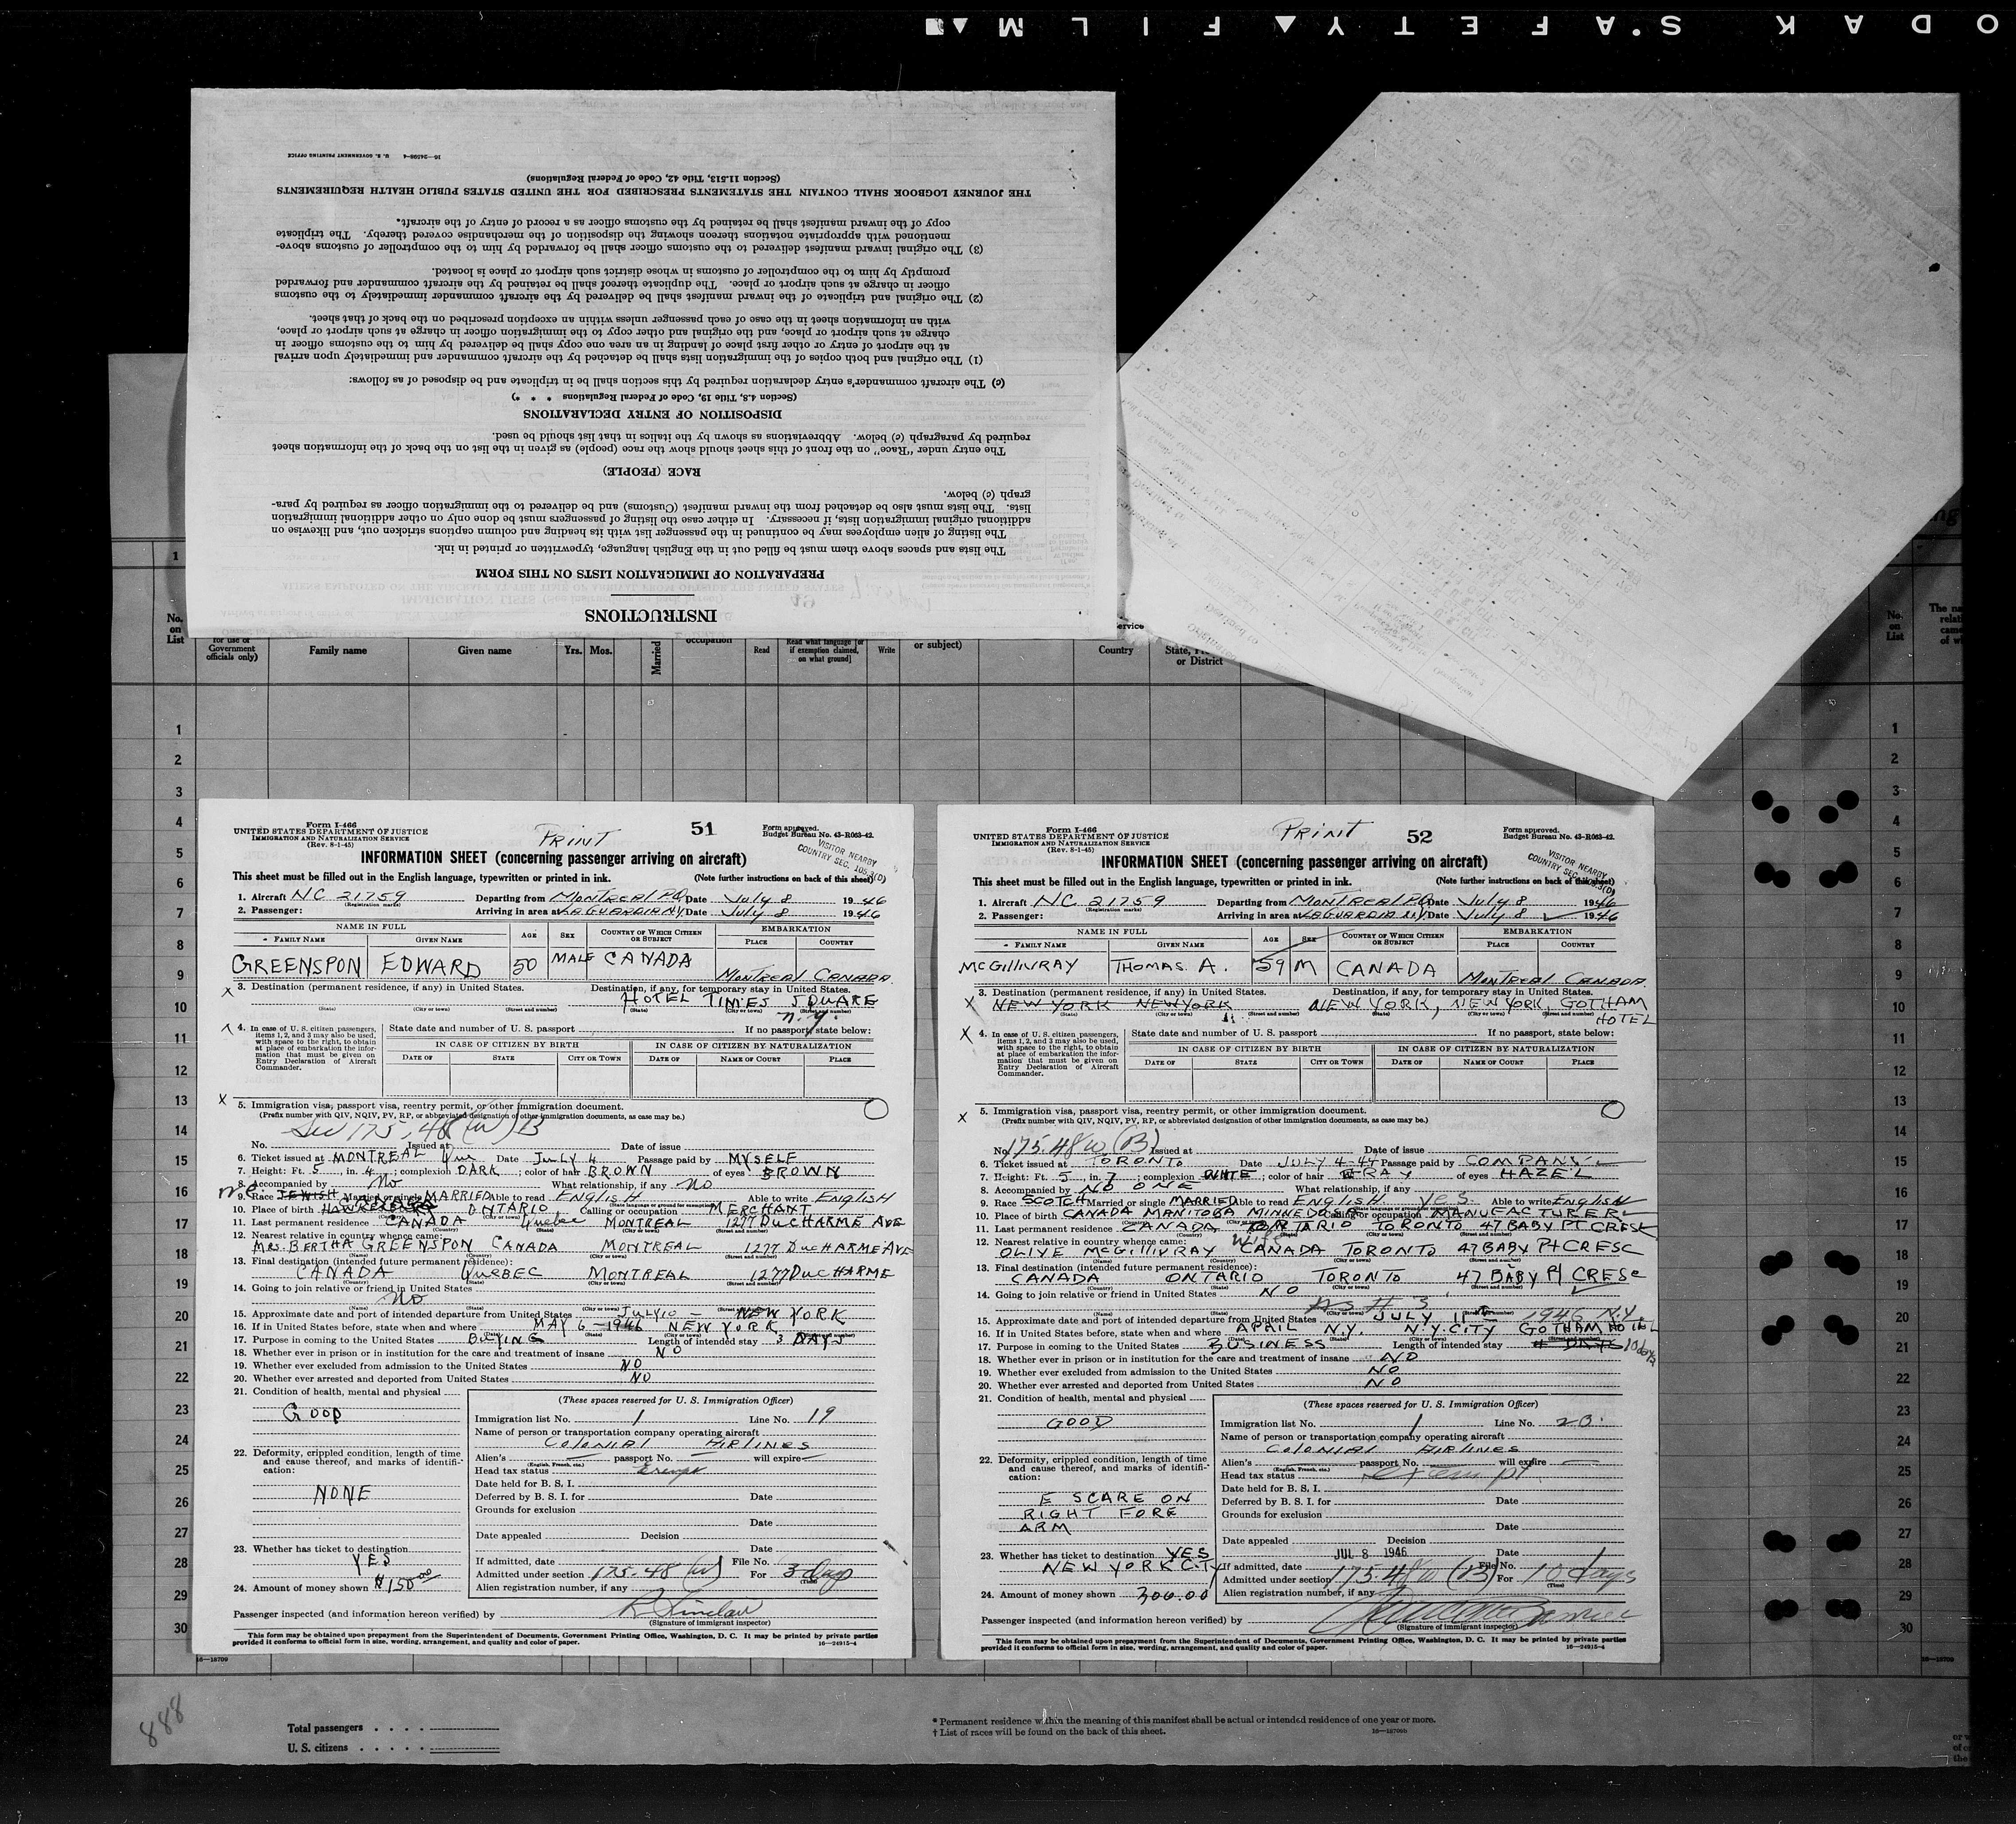 ODAK S.AFETY▲FILM▲■
INSTRUCTIONS
PREPARATION OF IMMIGRATION LISTS ON THIS FORM
The lists and spaces above them must be filled out in the English language, typewritten or printed in ink.
The listing of alien employees may be continued in the passenger list with its heading and column captions stricken out, and likewise on
additional original immigration lists, if necessary. In either case the listing of passengers must be done only on other additional immigration
lists. The lists must also be detached from the inward manifest (Customs) and be delivered to the immigration officer as required by para-
graph (c) below.
RACE (PEOPLE)
The entry under "Race" on the front of this sheet should show the race (people) as given in the list on the back of the information sheet
required by paragraph (c) below. Abbreviations as shown by the italics in that list should be used.
DISPOSITION OF ENTRY DECLARATIONS
(Section 4.8, Title 19, Code of Federal Regulations * * *)
(c) The aircraft commander's entry declaration required by this section shall be in triplicate and be disposed of as follows:
(1) The original and both copies of the immigration lists shall be detached by the aircraft commander and immediately upon arrival
at the airport of entry or other first place of landing in an area one copy shall be delivered by him to the customs officer in
charge at such airport or place, and the original and other copy to the immigration officer in charge at such airport or place,
with an information sheet in the case of each passenger unless within an exception prescribed on the back of that sheet.
(2) The original and triplicate of the inward manifest shall be delivered by the aircraft commander immediately to the customs
officer in charge at such airport or place. The duplicate thereof shall be retained by the aircraft commander and forwarded
promptly by him to the comptroller of customs in whose district such airport or place is located.
(3) The original inward manifest delivered to the customs officer shall be forwarded by him to the comptroller of customs above-
mentioned with appropriate notations thereon showing the disposition of the merchandise covered thereby. The triplicate
copy of the inward manifest shall be retained by the customs officer as a record of entry of the aircraft.
THE JOURNEY LOGBOOK SHALL CONTAIN THE STATEMENTS PRESCRIBED FOR THE UNITED STATES PUBLIC HEALTH REQUIREMENTS
(Section 11.513, Title 42, Code of Federal Regulations)
16—24598-4 U. S. GOVERNMENT PRINTING OFFICE
No. on List
for use of Government officials only)
Family name Given name Yrs. Mos. Married occupation Read Read what language [or if exemption claimed, on what ground] Write or subject) Country
or District
Form I-466
UNITED STATES DEPARTMENT OF JUSTICE
IMMIGRATION AND NATURALIZATION SERVICE
(Rev. 8-1-45)
PRINT
51
Form approved.
Budget Bureau No. 43-R063-42.
VISITOR NEARBY
COUNTRY SEC. 105.3(D)
INFORMATION SHEET (concerning passenger arriving on aircraft)
This sheet must be filled out in the English language, typewritten or printed in ink. (Note further instructions on back of this sheet)
1. Aircraft NC 21759 Departing from MONTREAL P.Q. Date July 8 1946
(Registration marks)
2. Passenger: Arriving in area at LAGUARDIA NY. Date July 8 1946
NAME IN FULL AGE SEX COUNTRY OF WHICH CITIZEN OR SUBJECT EMBARKATION
FAMILY NAME GIVEN NAME PLACE COUNTRY
GREENSPON EDWARD 50 MALE CANADA MONTREAL CANADA
X 3. Destination (permanent residence, if any) in United States. Destination, if any, for temporary stay in United States.
HOTEL TIMES SQUARE
(State) (City or town) (Street and number) (State) (City or town) (Street and number)
N.Y.
4. In case of U. S. citizen passengers, items 1, 2, and 3 may also be used, with space to the right, to obtain at place of embarkation the information that must be given on Entry Declaration of Aircraft Commander.
State date and number of U. S. passport If no passport, state below:
IN CASE OF CITIZEN BY BIRTH IN CASE OF CITIZEN BY NATURALIZATION
DATE OF STATE CITY OR TOWN DATE OF NAME OF COURT PLACE
X 5. Immigration visa, passport visa, reentry permit, or other immigration document.
(Prefix number with QIV, NQIV, PV, RP, or abbreviated designation of other immigration documents, as case may be.)
Sec 175.48(w)B
No. Issued at Date of issue
6. Ticket issued at MONTREAL Que Date JULY 4 Passage paid by MYSELF
7. Height: Ft. 5 in. 4 ; complexion DARK ; color of hair BROWN of eyes BROWN
8. Accompanied by No What relationship, if any NO
9. Race JEWISH Married or single MARRIED Able to read ENGLISH Able to write ENGLISH
10. Place of birth ONTARIO Calling or occupation MERCHANT
11. Last permanent residence CANADA Quebec MONTREAL 1277 DUCHARME AVE
12. Nearest relative in country whence came:
MRS. BERTHA GREENSPON CANADA MONTREAL 1277 DUCHARME AVE
13. Final destination (intended future permanent residence):
CANADA QUEBEC MONTREAL 1277 DUCHARME
(Country) (State) (City or town) (Street and number)
14. Going to join relative or friend in United States NO
15. Approximate date and port of intended departure from United States JULY 10 – NEW YORK
16. If in United States before, state when and where MAY 6 – 1946 NEW YORK
17. Purpose in coming to the United States BUYING Length of intended stay 3 DAYS
18. Whether ever in prison or in institution for the care and treatment of insane NO
19. Whether ever excluded from admission to the United States NO
20. Whether ever arrested and deported from United States NO
21. Condition of health, mental and physical
GOOD
22. Deformity, crippled condition, length of time and cause thereof, and marks of identification:
NONE
23. Whether has ticket to destination
YES
24. Amount of money shown $150.00
(These spaces reserved for U. S. Immigration Officer)
Immigration list No. 1 Line No. 19
Name of person or transportation company operating aircraft
COLONIAL AIRLINES
Alien's passport No. will expire
(English, French, etc.)
Head tax status Exempt
Date held for B. S. I.
Deferred by B. S. I. for Date
Grounds for exclusion
Date
Date appealed Decision
Date
If admitted, date File No.
Admitted under section 175.48 (w) For 3 days
(Time)
Alien registration number, if any
Passenger inspected (and information hereon verified) by R Sinclair
(Signature of immigrant inspector)
This form may be obtained upon prepayment from the Superintendent of Documents, Government Printing Office, Washington, D. C. It may be printed by private parties
provided it conforms to official form in size, wording, arrangement, and quality and color of paper. 16—24915-4
Form I-466
UNITED STATES DEPARTMENT OF JUSTICE
IMMIGRATION AND NATURALIZATION SERVICE
(Rev. 8-1-45)
PRINT
52
Form approved.
Budget Bureau No. 43-R063-42.
VISITOR NEARBY
COUNTRY SEC. 105.3(D)
INFORMATION SHEET (concerning passenger arriving on aircraft)
This sheet must be filled out in the English language, typewritten or printed in ink. (Note further instructions on back of this sheet)
1. Aircraft NC 21759 Departing from MONTREAL P.Q. Date July 8 1946
(Registration marks)
2. Passenger: Arriving in area at LAGUARDIA NY Date July 8 1946
NAME IN FULL AGE SEX COUNTRY OF WHICH CITIZEN OR SUBJECT EMBARKATION
FAMILY NAME GIVEN NAME PLACE COUNTRY
MCGILLIVRAY THOMAS. A. 59 M CANADA MONTREAL CANADA
X 3. Destination (permanent residence, if any) in United States. Destination, if any, for temporary stay in United States.
NEW YORK NEW YORK NEW YORK, NEW YORK, GOTHAM HOTEL
(State) (City or town) (Street and number) (State) (City or town) (Street and number)
X 4. In case of U. S. citizen passengers, items 1, 2, and 3 may also be used, with space to the right, to obtain at place of embarkation the information that must be given on Entry Declaration of Aircraft Commander.
State date and number of U. S. passport If no passport, state below:
IN CASE OF CITIZEN BY BIRTH IN CASE OF CITIZEN BY NATURALIZATION
DATE OF STATE CITY OR TOWN DATE OF NAME OF COURT PLACE
X 5. Immigration visa, passport visa, reentry permit, or other immigration document.
(Prefix number with QIV, NQIV, PV, RP, or abbreviated designation of other immigration documents, as case may be.)
No. 175.48w (B) Issued at Date of issue
6. Ticket issued at TORONTO Date JULY 4-44 Passage paid by COMPANY
7. Height: Ft. 5 in. 7 ; complexion WHITE ; color of hair GRAY of eyes HAZEL
8. Accompanied by NO ONE What relationship, if any
9. Race SCOTCH Married or single MARRIED Able to read ENGLISH. yes Able to write ENGLISH
10. Place of birth CANADA MANITOBA MINNEDOSA Calling or occupation MANUFACTURER
11. Last permanent residence CANADA, ONTARIO TORONTO 47 BABY PT CRESC
12. Nearest relative in country whence came: Wife
OLIVE MCGILLIVRAY CANADA TORONTO 47 BABY Pt CRESC
13. Final destination (intended future permanent residence):
CANADA ONTARIO TORONTO 47 BABY Pt CRESC
(Country) (State) (City or town) (Street and number)
14. Going to join relative or friend in United States NO
As # 3
15. Approximate date and port of intended departure from United States JULY 11 1946 N.Y.
16. If in United States before, state when and where APRIL N.Y. N.Y. CITY GOTHAM HOTEL
17. Purpose in coming to the United States BUSINESS Length of intended stay 4 DAYS 10 days
18. Whether ever in prison or in institution for the care and treatment of insane NO
19. Whether ever excluded from admission to the United States NO
20. Whether ever arrested and deported from United States NO
21. Condition of health, mental and physical
GOOD
22. Deformity, crippled condition, length of time and cause thereof, and marks of identification:
E SCARE ON
RIGHT FORE
ARM
23. Whether has ticket to destination YES
NEW YORK CITY
24. Amount of money shown 300.00
(These spaces reserved for U. S. Immigration Officer)
Immigration list No. 1 Line No. 20.
Name of person or transportation company operating aircraft
COLONIAL AIRLINES
Alien's passport No. will expire
(English, French, etc.)
Head tax status exempt
Date held for B. S. I.
Deferred by B. S. I. for Date
Grounds for exclusion
Date
Date appealed Decision
JUL 8 1946 Date
If admitted, date File No.
Admitted under section 175.48w (B) For 10 days
(Time)
Alien registration number, if any
Passenger inspected (and information hereon verified) by
(Signature of immigrant inspector)
This form may be obtained upon prepayment from the Superintendent of Documents, Government Printing Office, Washington, D. C. It may be printed by private parties
provided it conforms to official form in size, wording, arrangement, and quality and color of paper. 16—24915-4
16—18709
888
Total passengers
U. S. citizens
* Permanent residence within the meaning of this manifest shall be actual or intended residence of one year or more.
† List of races will be found on the back of this sheet. 16—18709b